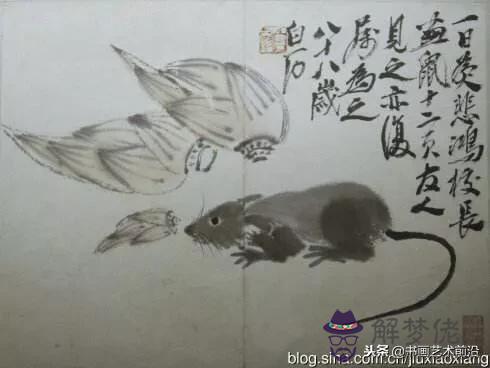 一日悲鴻校長
畫鼠十二頁友人
見之亦復
屬為之
八十八歲
白石
解梦佬
头条@书画艺术前沿
blog.sina.com.cn/jiuxiaoxiang